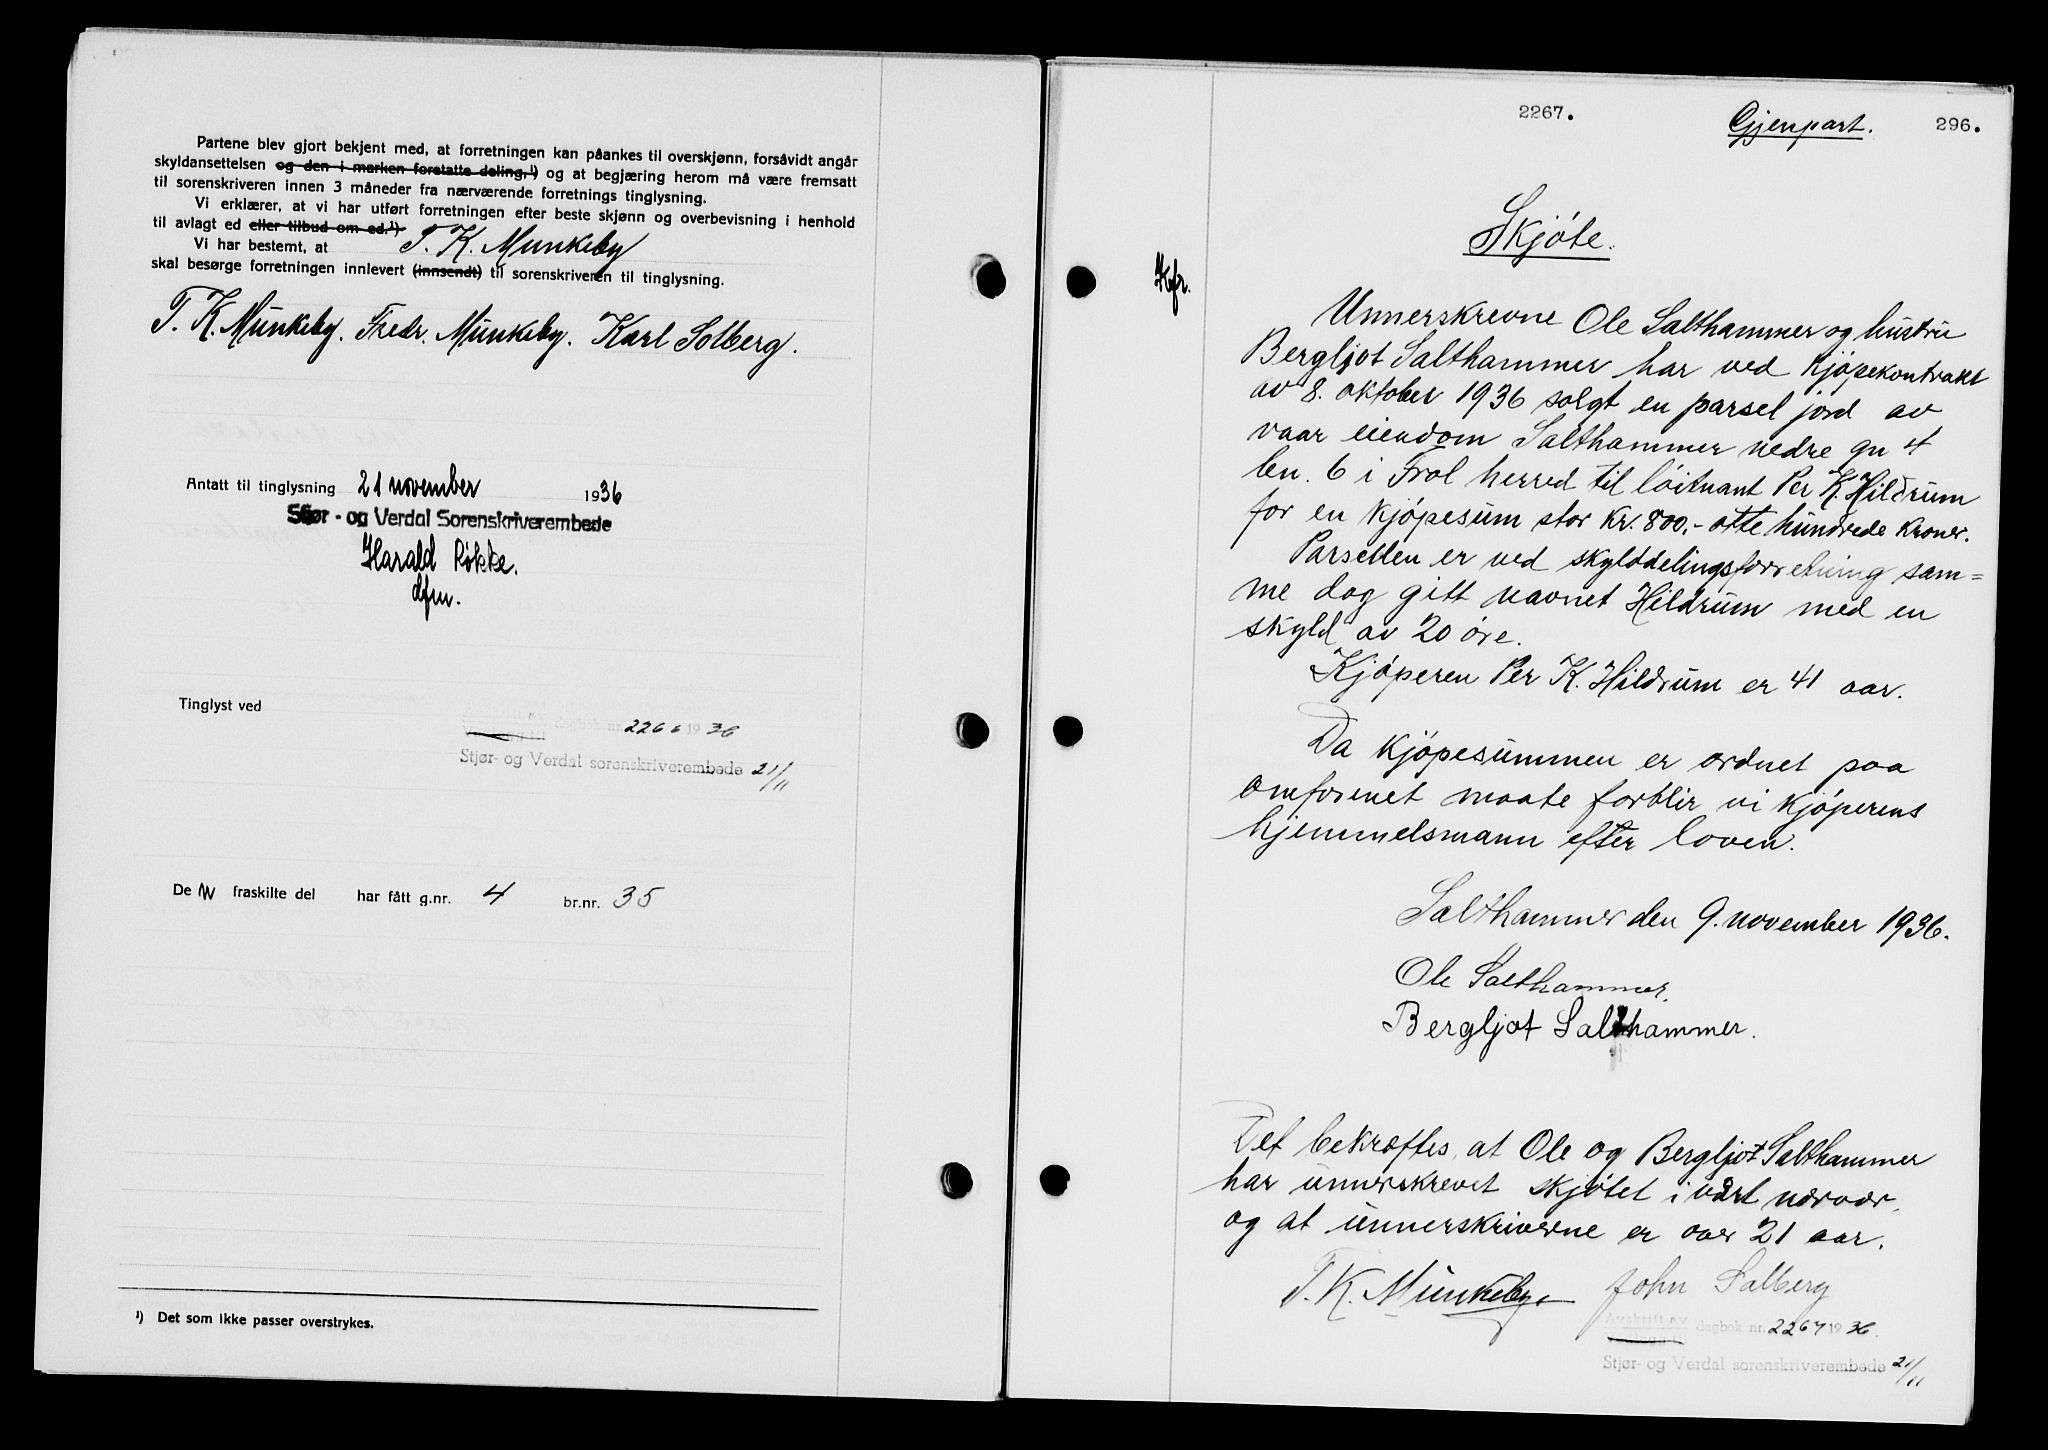 Partene blev gjort bekjent med, at forretningen kan påankes til overskjønn, forsåvidt angår
skyldansettelsen og den i marken foretatte deling,¹) og at begjæring herom må være fremsatt
til sorenskriveren innen 3 måneder fra nærværende forretnings tinglysning.
Vi erklærer, at vi har utført forretningen efter beste skjønn og overbevisning i henhold
til avlagt ed eller tilbud om ed.¹)
Vi har bestemt, at T. K. Munkeby
skal besørge forretningen innlevert (innsendt) til sorenskriveren til tinglysning.
T. K. Munkeby. Fredr. Munkeby. Karl Solberg.
Antatt til tinglysning 21 november 1936
Stjør- og Verdal Sorenskriverembede
Harald Røkke.
dfm.
Tinglyst ved
dagbok nr. 2266 1936
Stjør- og Verdal sorenskriverembede 21/11
De n fraskilte del har fått g.nr. 4 br.nr. 35
¹) Det som ikke passer overstrykes.
2267.
Gjenpart.
296.
Skjøte.
Kfr.
Unnerskrevne Ole Salthammer og hustru
Bergljot Salthammer har ved kjøpekontrakt
av 8. oktober 1936 solgt en parsel jord av
vaar eiendom Salthammer nedre gn 4
bn. 6 i Frol herred til løitnant Per K. Hildrum
for en kjøpesum stor kr. 800,- otte hundrede kroner.
Parsellen er ved skylddelingsforretning sam=
me dag gitt navnet Hildrum med en
skyld av 20 øre.
Kjøperen Per K. Hildrum er 41 aar.
Da kjøpesummen er ordnet paa
omforenet maate forblir vi kjøperens
hjemmelsmann efter loven.
Salthammer den 9. november 1936.
Ole Salthammer.
Bergljot Salthammer.
Det bekræftes, at Ole og Bergljot Salthammer
har unnerskrevet skjøtet i vårt nærvær,
og at unnerskriverne er over 21 aar.
T. K. Munkeby John Salberg
Avskrift av dagbok nr. 2267 1936.
Stjør- og Verdal sorenskriverembede 21/11